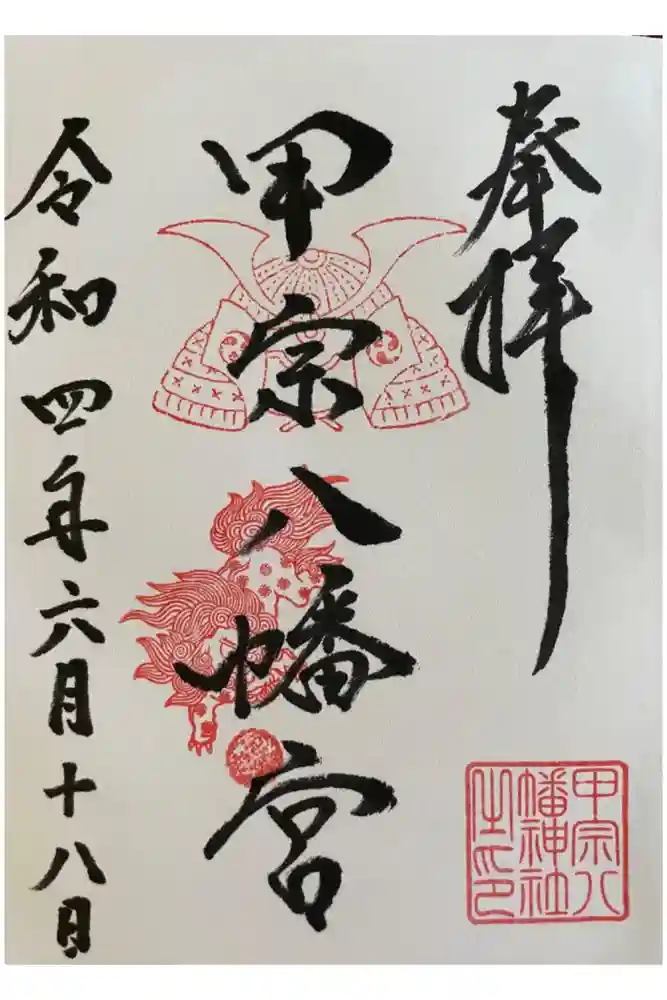 奉拝
甲宗八幡宮
令和四年六月十八日
甲宗八
幡神社
之印